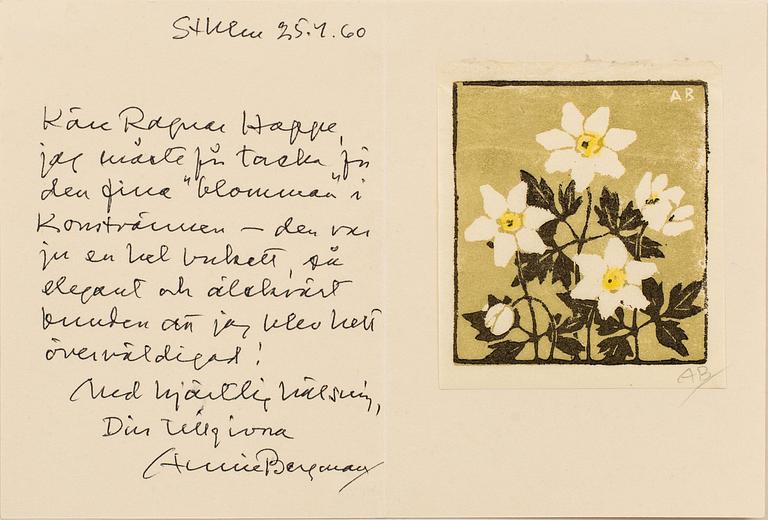 Sthlm 25.1.60
Käre Ragnar Hoppe,
jag måste få tacka för
den fina "blomman" i
Konstrännen – den var
ju en hel bukett, så
elegant och älskvärt
bunden att jag blev helt
överväldigad!
Med hjärtlig hälsning,
Din tillgivna
Annie Bergman
AB
AB